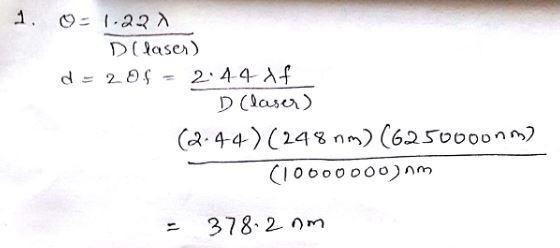 1. θ = 1.22 λ / D (laser)
d = 2θf = 2.44 λf / D (laser)
(2.44) (248 nm) (6250000 nm) / (10000000) nm
= 378.2 nm